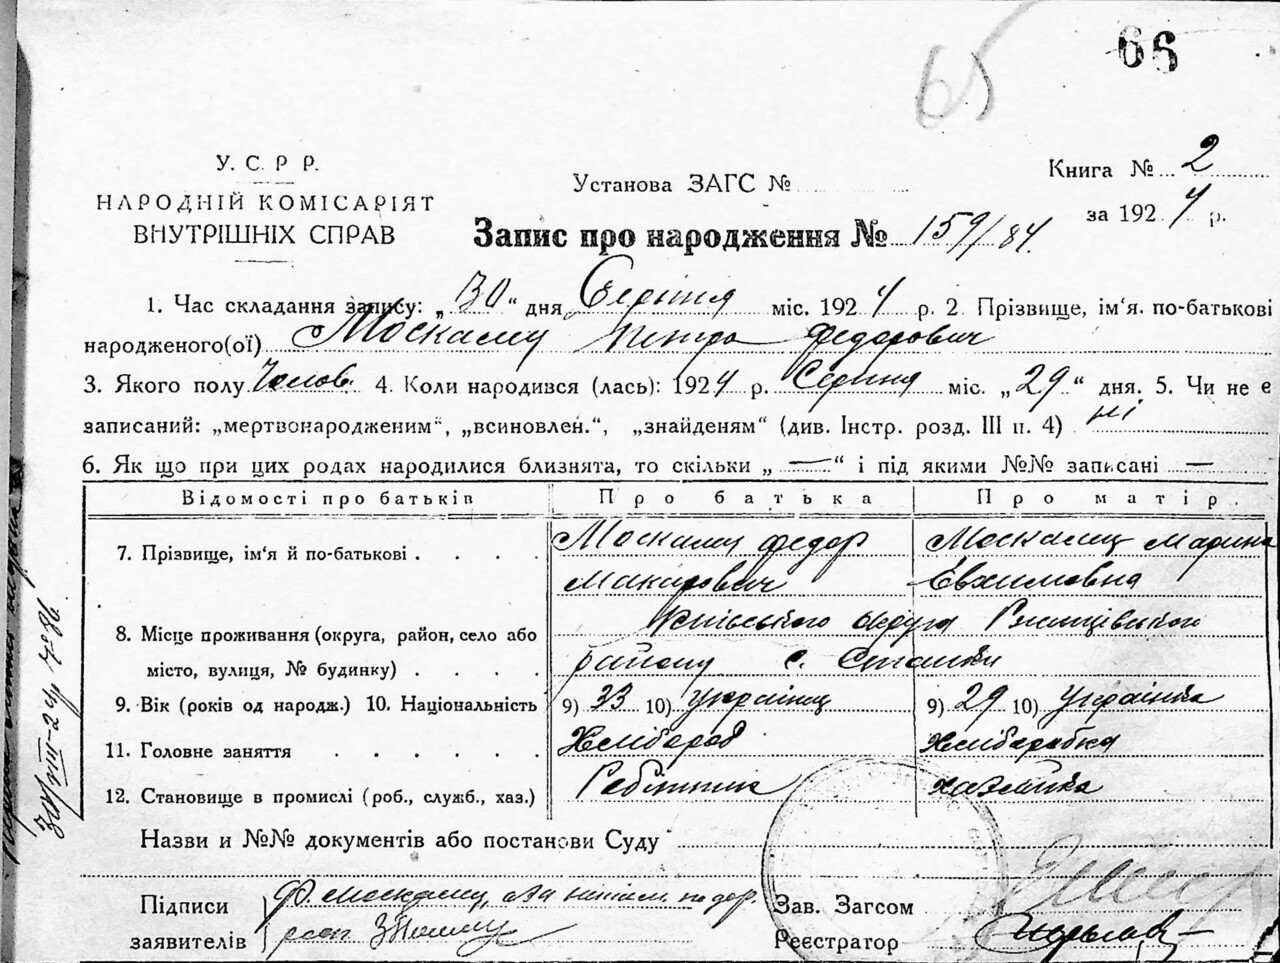 66
65
У. С. Р Р.
НАРОДНІЙ КОМІСАРІЯТ
ВНУТРІШНІХ СПРАВ
Установа ЗАГС №
Книга № 2
за 1924 р.
Запис про народження № 159/84.
1. Час складання запису: „30“ дня Серпня міс. 1924 р. 2. Прізвище, ім'я. по-батькові
народженого(ої) Москалец Петро Федорович
3. Якого полу Чолов. 4. Коли народився (лась): 1924 р. Серпня міс. „29“ дня. 5. Чи не є
записаний: „мертвонародженим“, „всиновлен.“, „знайденям“ (див. Інстр. розд. III п. 4) ні
6. Як що при цих родах народилися близнята, то скільки „—“ і під якими №№ записані —
Відомості про батьків Про батька Про матір.
7. Прізвище, ім'я й по-батькові . . . . Москалец Федор Москалец Марина
Макарович Евхимовна
8. Місце проживання (округа, район, село або Київського округа Ржищівського
місто, вулиця, № будинку) . . . . району с. Стайки
9. Вік (років од народж.) 10. Національність 9) 33 10) українец 9) 29 10) українка
11. Головне заняття . . . . . Хлібороб Хлібаробка
12. Становище в промислі (роб., служб., хаз.) Робітник хазяйка
Назви и №№ документів або постанови Суду
Підписи Ф. Москалец, а за
заявителів
Зав. Загсом
Реєстратор